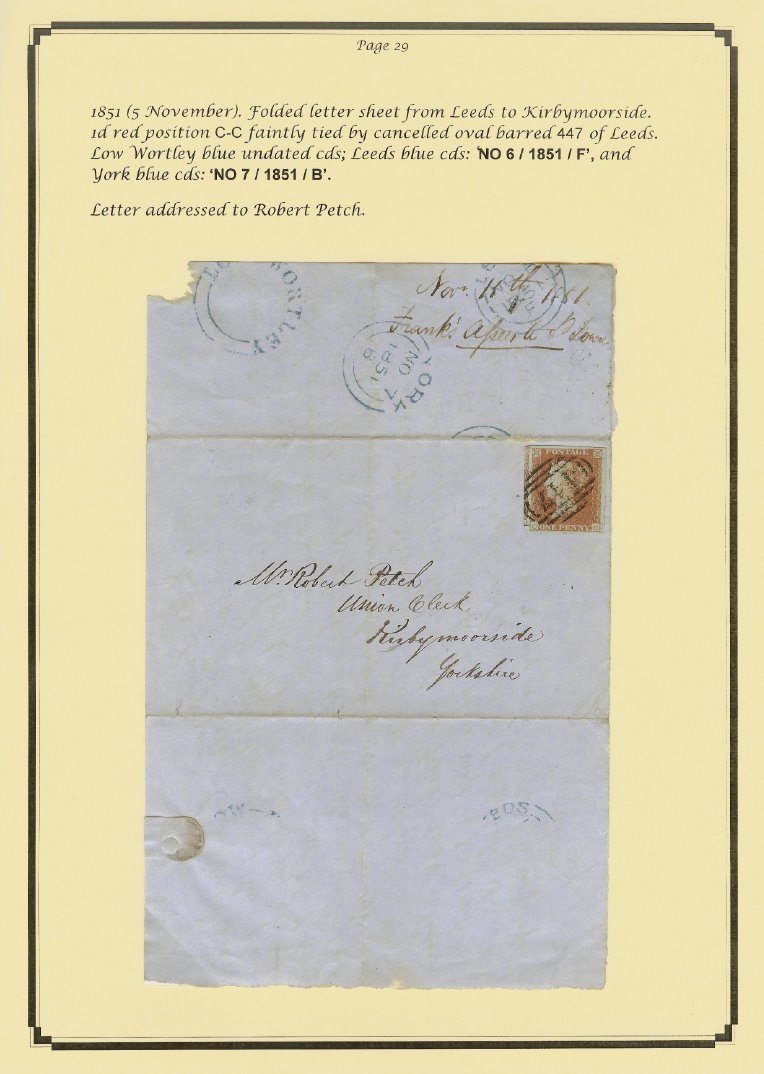 Page 29
1851 (5 November). Folded letter sheet from Leeds to Kirbymoorside.
1d red position C-C faintly tied by cancelled oval barred 447 of Leeds.
Low Wortley blue undated cds; Leeds blue cds: ‘NO 6 / 1851 / F’, and
York blue cds: ‘NO 7 / 1851 / B’.
Letter addressed to Robert Petch.
WORTLEY
Novr
Frank's
YORK
NO 7
1851
B
POSTAGE
447
ONE PENNY
C C
Mr. Robert Petch
Union Clerk
Kirbymoorside
Yorkshire
OW
EDS